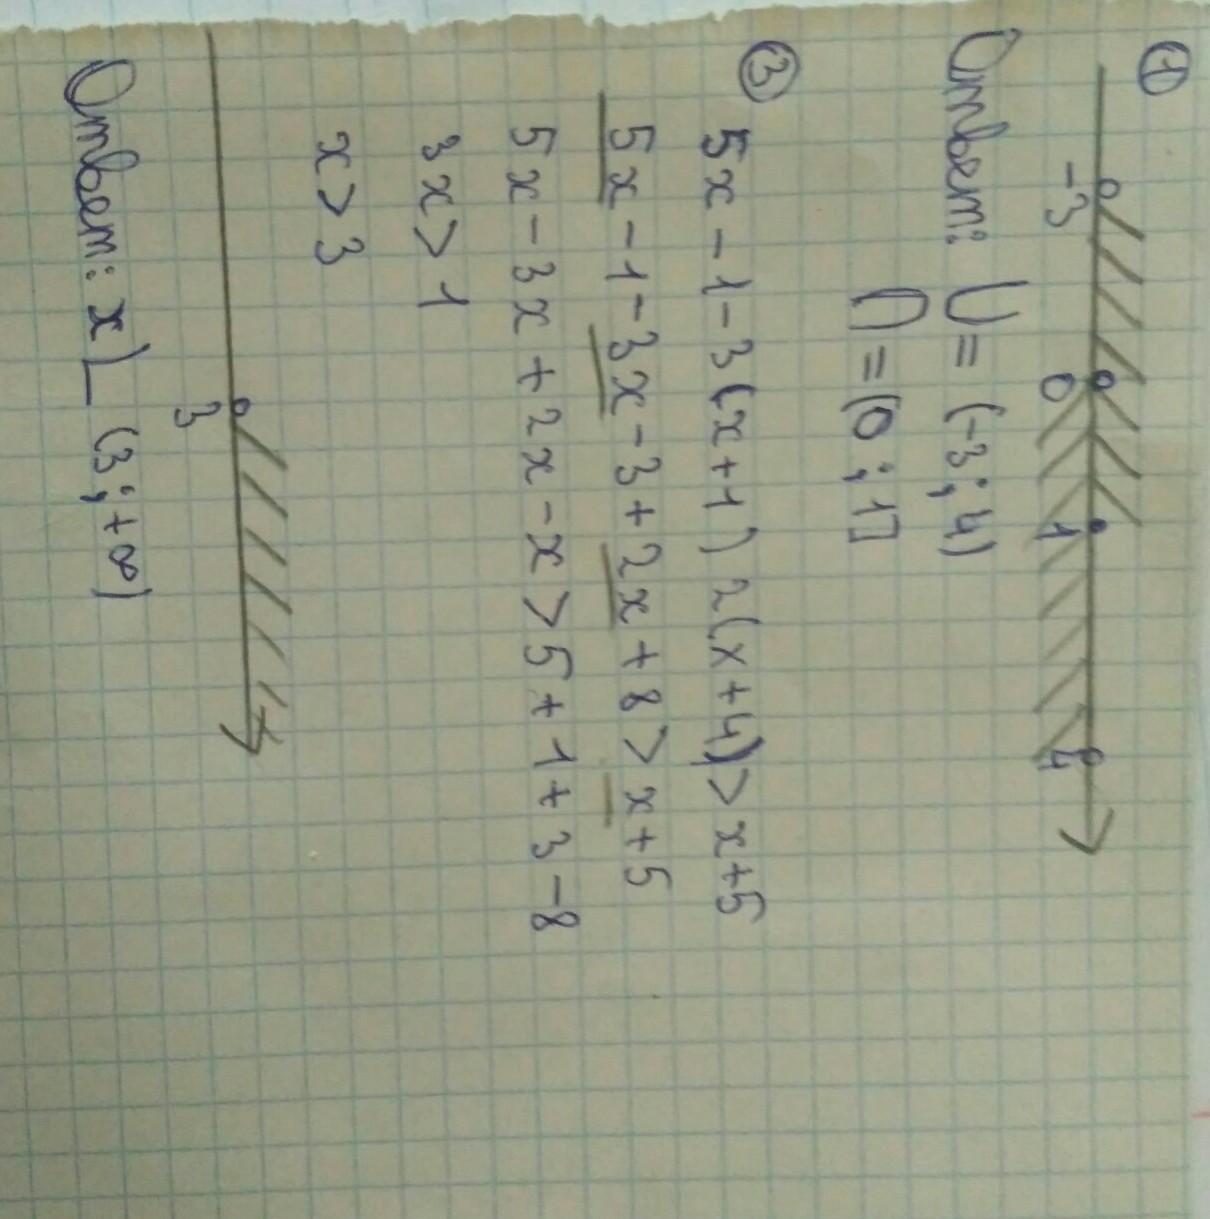 ①
-3 0 1 4
Ответ: U = (-3; 4)
∩ = (0; 1]
③ 5x - 1 - 3(x+1) 2(x+4) > x+5
5x - 1 - 3x - 3 + 2x + 8 > x + 5
5x - 3x + 2x - x > 5 + 1 + 3 - 8
3x > 1
x > 3
3
Ответ: x (3; +∞)